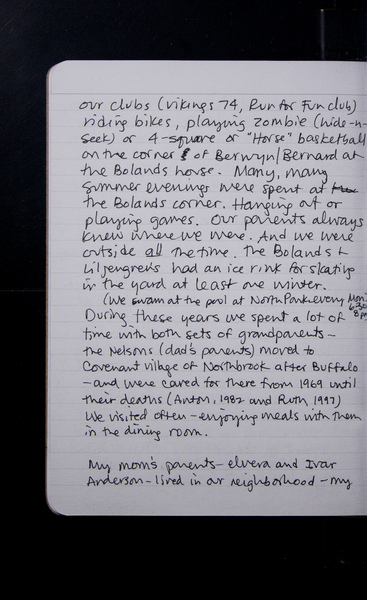 our clubs (Vikings 74, Run for Fun club)
riding bikes, playing zombie (hide-n-
seek) or 4-square or "Horse" basketball
on the corner of Berwyn/Bernard at
the Bolands house. Many, many
summer evenings were spent at the
the Bolands corner. Hanging out or
playing games. Our parents always
knew where we were. And we were
outside all the time. The Bolands &
Liljengrens had an ice rink for skating
in the yard at least one winter.
(We swam at the pool at North Park every Mon.
8pm
During these years we spent a lot of
time with both sets of grandparents-
the Nelsons (dad's parents) moved to
Covenant Village of Northbrook after Buffalo
-and were cared for there from 1969 until
their deaths (Anton, 1982 and Ruth, 1997)
We visited often - enjoying meals with them
in the dining room.
My mom's parents - elvera and Ivar
Anderson - lived in our neighborhood - my